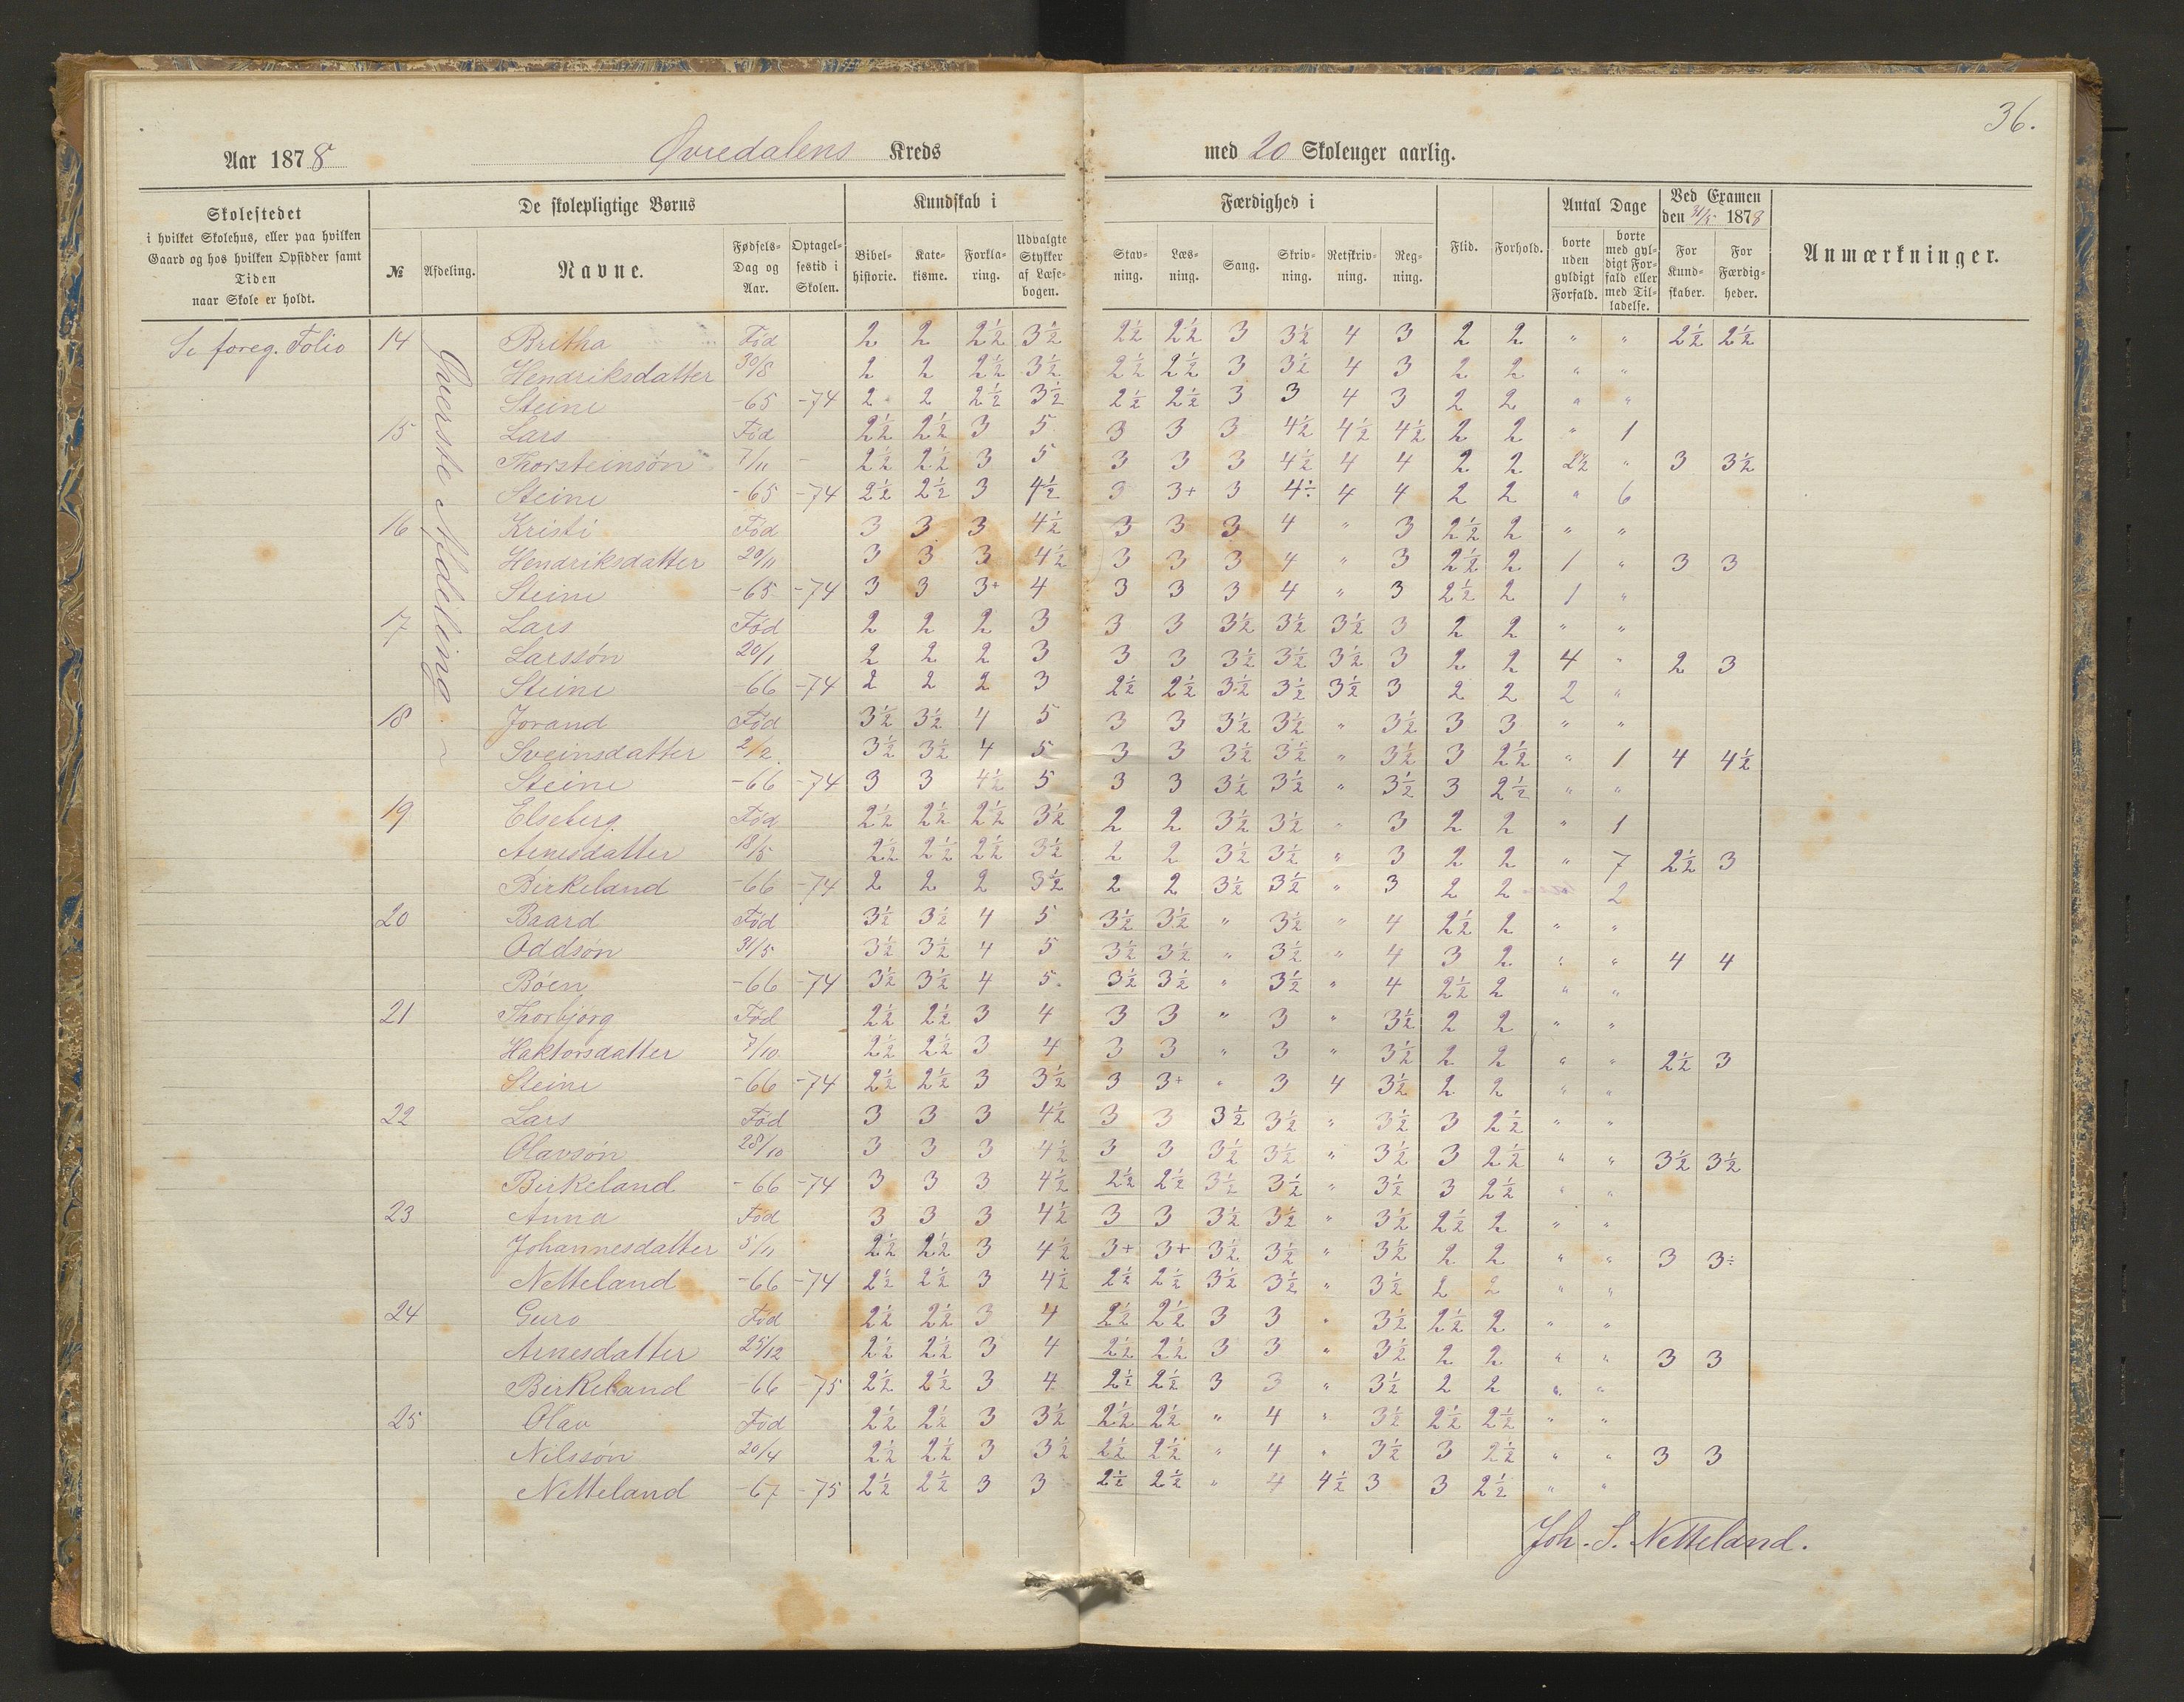 36.
Aar 1878 Øvredalens Kreds med 20 Skoleuger aarlig.
Skolestedet i hvilket Skolehus, eller paa hvilken Gaard og hos hvilken Opsidder samt Tiden naar Skole er holdt.
De skolepligtige Børns
№ Afdeling. Navne. Fødsels-Dag og Aar. Optagelsestid i Skolen.
Kundskab i
Bibelhistorie. Katekisme. Forklaring. Udvalgte Stykker af Læsebogen.
Færdighed i
Stavning. Læsning. Sang. Skrivning. Retskrivning. Regning.
Flid. Forhold.
Antal Dage
borte uden gyldigt Forfald. borte med gyldigt Forfald eller med Tilladelse.
Ved Examen den 31/5 1878
For Kundskaber. For Færdigheder.
Anmærkninger.
Se foreg. Folio
Øverste Afdeling
14 Britha Fød 2 2 2½ 3½ 2½ 2½ 3 3½ 4 3 2 2 " " 2½ 2½
Hendriksdatter 30/8 2 2 2½ 3½ 2½ 2½ 3 3½ 4 3 2 2 " "
Steine -65 -74 2 2 2½ 3½ 2½ 2½ 3 3 4 3 2 2 " "
15 Lars Fød 2½ 2½ 3 5 3 3 3 4½ 4½ 4½ 2 2 " 1
Thorsteinsøn 7/11 - 2½ 2½ 3 5 3 3 3 4½ 4 4 2 2 2½ " 3 3½
Steine -65 -74 2½ 2½ 3 4½ 3 3+ 3 4÷ 4 4 2 2 " 6
16 Kristi Fød 3 3 3 4½ 3 3 3 4 " 3 2½ 2 " "
Hendriksdatter 20/11 3 3 3 4½ 3 3 3 4 " 3 2½ 2 1 " 3 3
Steine -65 -74 3 3 3+ 4 3 3 3 4 " 3 2½ 2 1 "
17 Lars Fød 2 2 2 3 3 3 3½ 3½ 3½ 3 2 2 " "
Larssøn 20/1 2 2 2 3 3 3 3½ 3½ 3½ 3 2 2 4 " 2 3
Steine -66 -74 2 2 2 3 2½ 2½ 3½ 3½ 3½ 3 2 2 2 "
18 Jorand Fød 3½ 3½ 4 5 3 3 3½ 3½ " 3½ 3 3 " "
Sveinsdatter 2/2 3½ 3½ 4 5 3 3 3½ 3½ " 3½ 3 2½ " 1 4 4½
Steine -66 -74 3 3 4½ 5 3 3 3½ 3½ " 3½ 3 2½ " "
19 Elseberg Fød 2½ 2½ 2½ 3½ 2 2 3½ 3½ " 3 2 2 " 1
Arnesdatter 18/5 2½ 2½ 2½ 3½ 2 2 3½ 3½ " 3 2 2 " 7 2½ 3
Birkeland -66 -74 2 2 2 3½ 2 2 3½ 3½ " 3 2 2 2
20 Baard Fød 3½ 3½ 4 5 3½ 3½ " 3½ " 4 2½ 2 " "
Oddsøn 31/5 3½ 3½ 4 5 3½ 3½ " 3½ " 4 3 2 " " 4 4
Bøen -66 -74 3½ 3½ 4 5 3½ 3½ " 3½ " 4 2½ 2 " "
21 Thorbjorg Fød 2½ 2½ 3 4 3 3 " 3 " 3½ 2 2 " "
Haktorsdatter 7/10 2½ 2½ 3 4 3 3 " 3 " 3½ 2 2 " " 2½ 3
Steine -66 -74 2½ 2½ 3 3½ 3 3+ " 3 4 3½ 2 2 " "
22 Lars Fød 3 3 3 4½ 3 3 3½ 3½ " 3½ 3 2½ " "
Olavsøn 28/10 3 3 3 4½ 3 3 3½ 3½ " 3½ 3 2½ " " 3½ 3½
Birkeland -66 -74 3 3 3 4½ 2½ 2½ 3½ 3½ " 3½ 3 2½ " "
23 Anna Fød 3 3 3 4½ 3 3 3½ 3½ " 3½ 2½ 2 " "
Johannesdatter 5/11 2½ 2½ 3 4½ 3+ 3+ 3½ 3½ " 3½ 2 2 " " 3 3÷
Netteland -66 -74 2½ 2½ 3 4½ 2½ 2½ 3½ 3½ " 3½ 2 2 " "
24 Guro Fød 2½ 2½ 3 4 2½ 2½ 3 3 " 3½ 2½ 2 " "
Arnesdatter 25/12 2½ 2½ 3 4 2½ 2½ 3 3 " 3½ 2 2 " " 3 3
Birkeland -66 -75 2½ 2½ 3 4 2½ 2½ 3 3 " 3½ 2 2 " "
25 Olav Fød 2½ 2½ 3 3½ 2½ 2½ " 4 " 3½ 2½ 2½ " "
Nilssøn 20/4 2½ 2½ 3 3½ 2½ 2½ " 4 " 3½ 3 2½ " " 3 3
Netteland -67 -75 2½ 2½ 3 3 2½ 2½ " 4 4½ 3 3 2½ " "
Joh. S. Netteland.